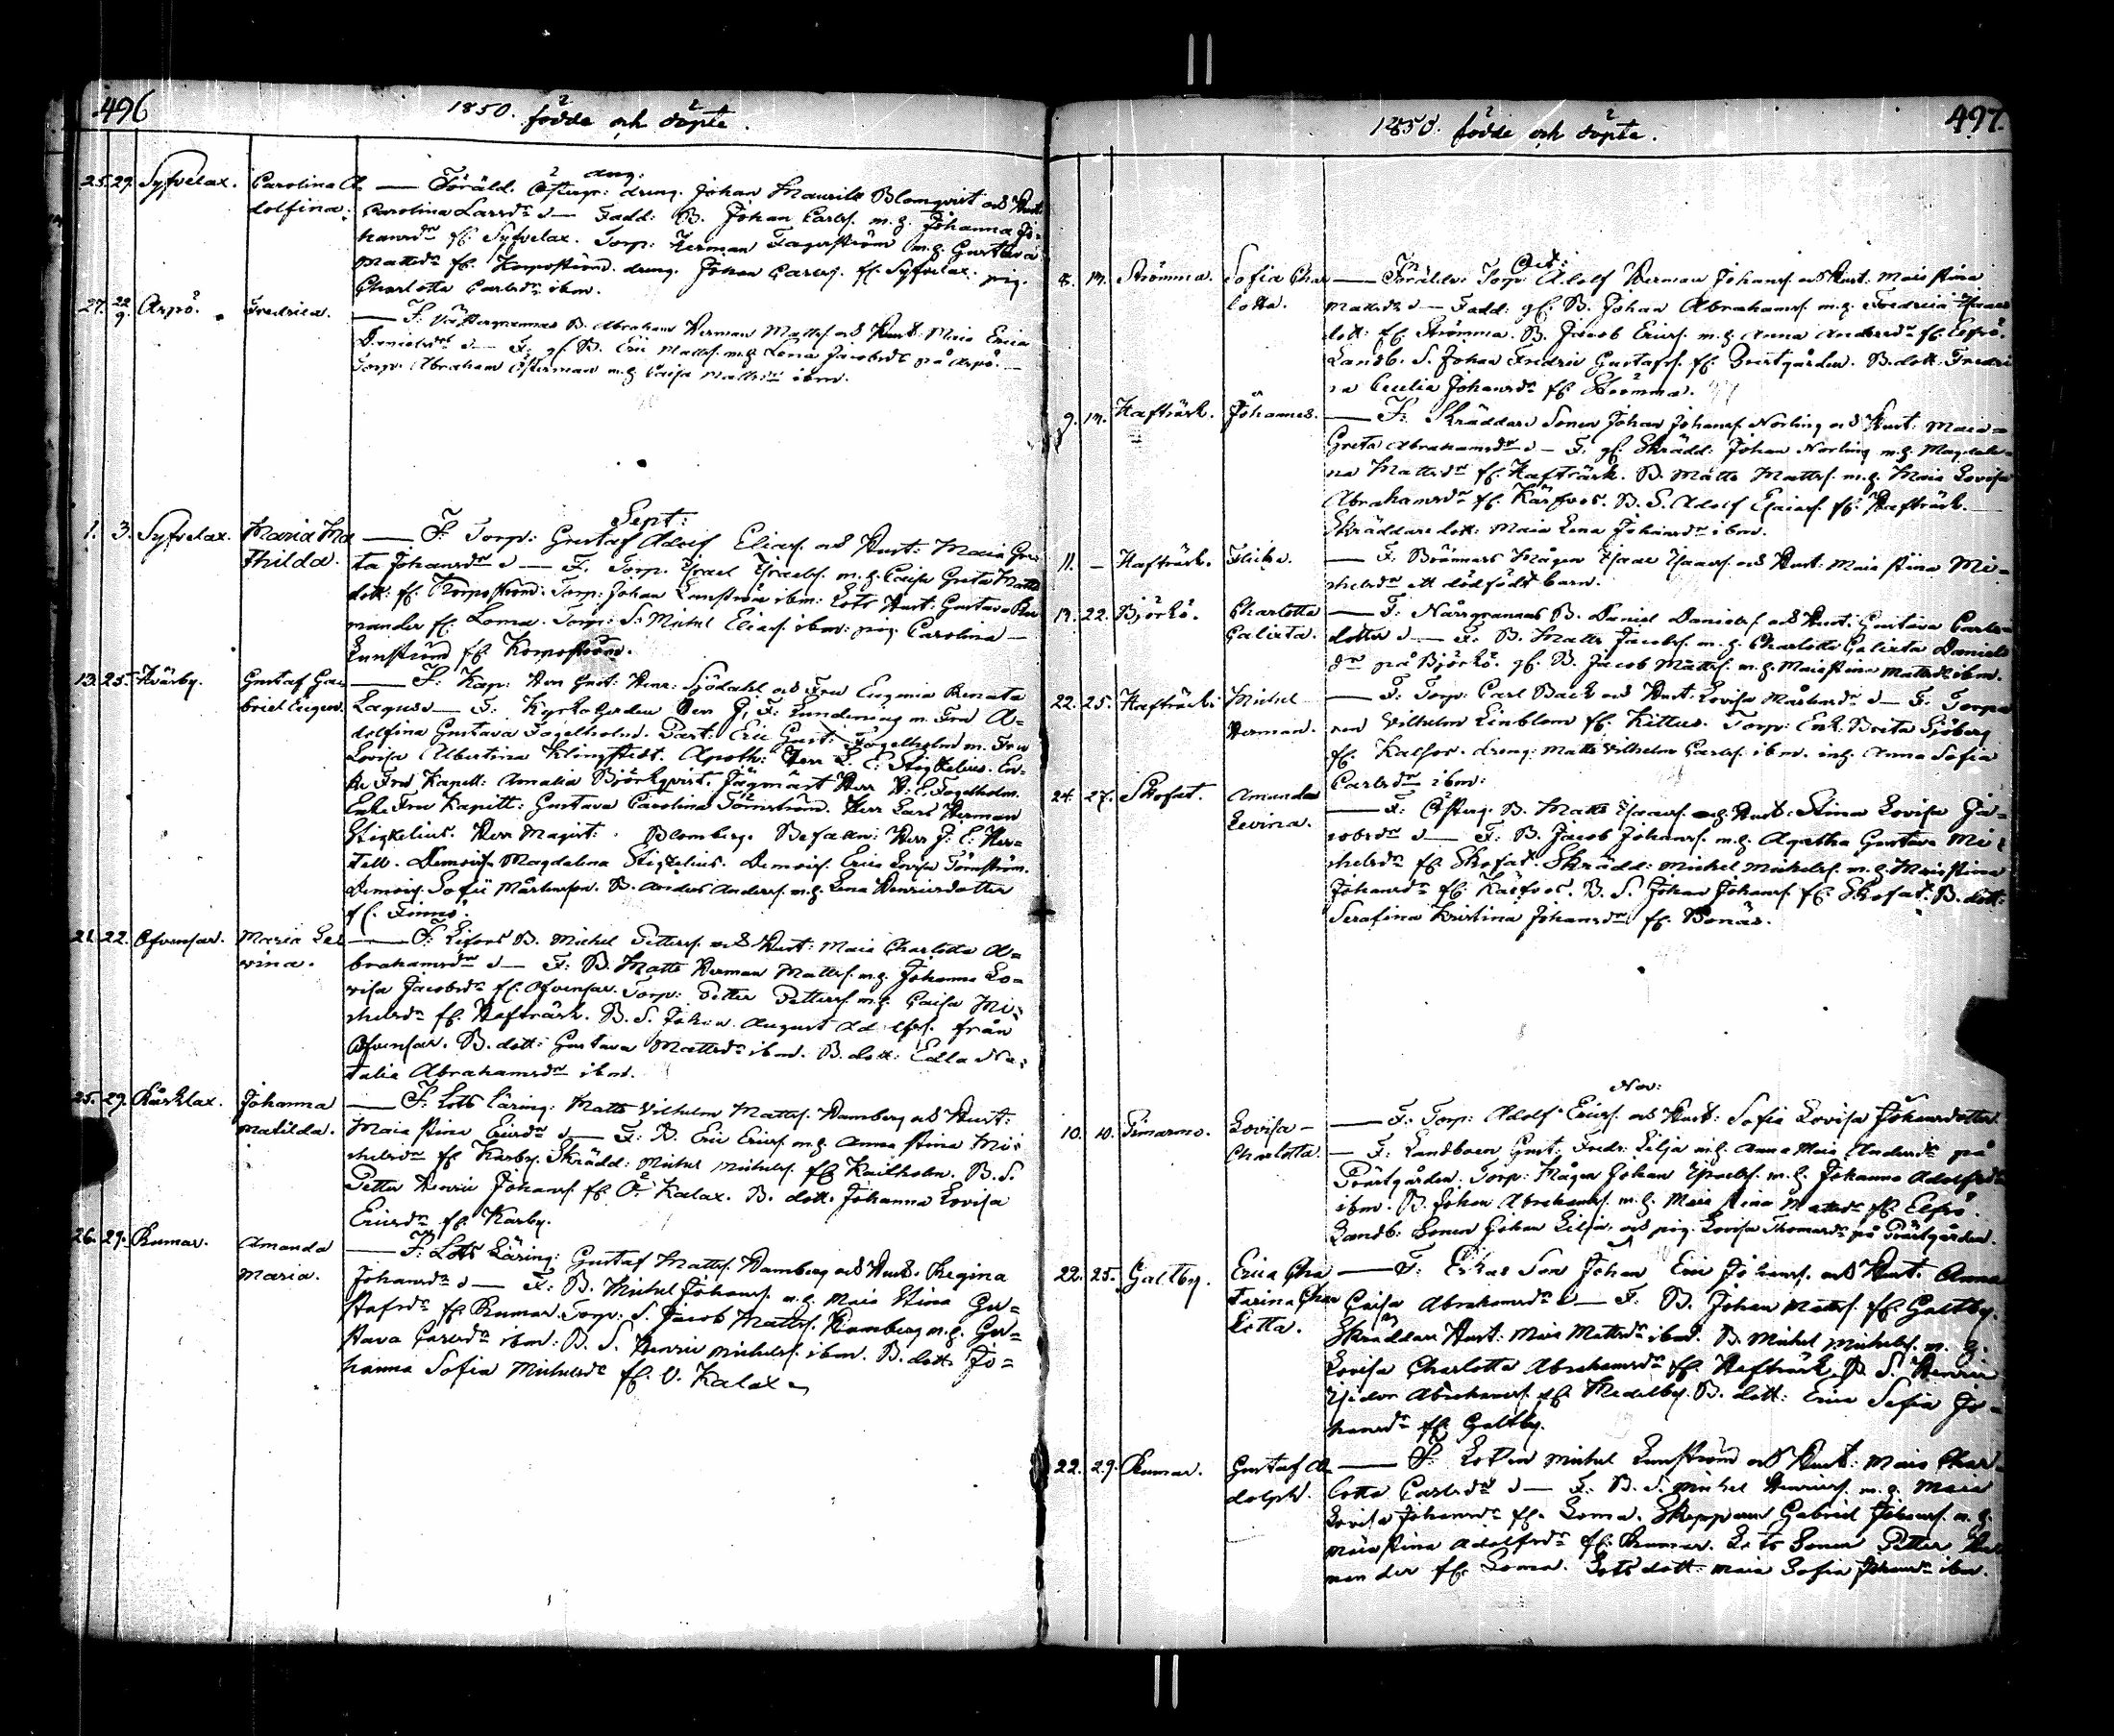 496
1850. födde och döpte.
Aug:
25. 29. Syfvelax. Carolina A — Föräld. Östergr: dräng. Johan Maurits Blomqvist och Hust:
dolfina. Carolina Larsdr d — Fadd: B. Johan Carls. m. h. Johanna Jo=
hansdr fr. Syfvelax. Torp: Herman Fagerström m. h. Gustava
Mattsdr fr. Korpoström. dräng. Johan Carls. fr. Syfvelax. pig.
Charlotta Carlsdr ibm.
27. 22/9 Aspö. Fredrica. — F: Västergrannas B. Abraham Herman Matts. och Hust: Maja Erica
Danielsdr d — F: gf. B. Eric Matts. m. h. Lena Jacobsdr på Aspö. —
Torp: Abraham Österman m. h. Caisa Mattsdr ibm.
Sept:
1. 3. Syfvelax. Maria Ma — F: Torp: Gustaf Adolf Elias. och Hust: Maja Gre
thilda. ta Johansdr d — F: Torp. Israel Israels. m. h. Caisa Greta Matts
dott: fr. Korpoström. Torp: Johan Lunström ibm: Lots Hust: Gustava
mander fr. Lom̃a. Torp: S: Michel Elias. ibm: pig. Carolina —
Lunström fr. Korpoström.
13. 25. Kvärby. Gustaf Ga — F: Kap: Herr Gust: Henr: Sjödahl och Fru Eugenia Renata
briel Eugen. Lagus d — F: Kyrkoherden Herr J. F: Sunderwag m. Fru A=
dolfina Gustava Fogelholm. Past: Eric Gust: Fogelholm m. Fru
Lovisa Albertina Klingstedt. Apoth: Herr L. E: Stigzelius. En=
ke Fru Kapell: Amalia Björkqvist. Jägmäst Herr H: E. Fogelholm.
Enke Fru Kapell: Gustava Carolina Törnström. Herr Lars Herman
Stigzelius. Herr Magist: Blomberg. Befalln: Herr J: E: Her=
tell. Demois. Magdalena Stigzelius. Demois. Erica Lovisa Törnström.
Demois. Sofie Mårtenson. B. Anders Anders. m. h. Lena Henricsdotter
fr. Finnö.
21. 22. Ofvensar. Maria Le — F: Lifvas B. Michel Petters. och Hust: Maja Charlotta A=
vina. brahamsdr d — F: B. Matts Herman Matts. m. h. Johanna Lo=
visa Jacobsdr fr. Ofvensar. Torp: Petter Petters. m. h. Caisa Mi=
chelsdr fr. Hafträsk. B. S. Johan August Adolfs. från
Ofvensar. B. dott: Gustava Mattsdr ibm. B. dott: Edla Na=
talia Abrahamsdr ibm.
25. 29. Rårklax. Johanna — F: Lots Läring: Matts Vilhelm Matts. Ramberg och Hust:
Matilda. Maja Stina Ericsdr d — F: B. Eric Erics. m. h. Anna Stina Mi=
chelsdr fr. Karby. Skrädd: Michel Michels. fr. Kailholm. B. S.
Petter Henric Johans. fr. Ö. Kalax. B. dott. Johanna Lovisa
Ericsdr fr. Karby.
26. 29. Rumar. Amanda — F: Lots Läring: Gustaf Matts. Ramberg och Hust. Regina
Maria. Johansdr d — F: B. Michel Johans. m. h. Maja Stina Gu=
stafsdr fr. Rumar. Torp: S. Jacob Matts. Ramberg m. h. Gu=
stava Carlsdr ibm: B. S. Henric Michels. ibm. B. dott. Jo=
hanna Sofia Michelsdr fr. Ö. Kalax
497.
1850. födde och döpte.
Oct:
8. 13. Strömma. Sofia Char — Föräldr: Torp: Adolf Herman Johans. och Hust: Maja Stina
lotta. Mattsdr d — Fadd: gf. B. Johan Abrahams. m. h. Fredrica Isaacs
dott: fr. Strömma. B. Jacob Erics. m. h. Anna Andersdr fr. Elfsö.
Landb. S. Johan Fredric Gustafs. fr. Prestgården. B. dott: Fredri
ca Cecilia Johansdr fr. Strömma.
9. 13. Hafträsk. Johannes. — F: Skräddare Sonen Johan Johans. Norling och Hust: Maja=
Greta Abrahamsdr d — F. gf. Skrädd: Johan Norling m. h. Magdale=
na Mattsdr fr. Hafträsk. B. Matts Matts. m. h. Maja Lovisa
Abrahamsdr fr. Kärfvos. B. S. Adolf Esaias. fr. Hafträsk.
Skräddare dott: Maja Lena Johansdr ibm.
11. — Hafträsk. Flicka. — F: Brännars Mågen Isaac Isaacs. och Hust: Maja Stina Mi=
chelsdr ett dödfödt barn.
13. 22. Björkö. Charlotta — F: Norrgrannas B. Daniel Daniels. och Hust: Gustava Carls=
Calixta. dotter d — F: B. Matts Jacobs. m. h. Charlotta Calixta Daniels
dr på Björkö. gf. B. Jacob Matts. m. h. Maja Stina Mattsdr ibm.
22. 25. Hafträsk. Michel — F: Torp: Carl Back och Hust: Lovisa Mårtensdr d — F: Torpa
Herman. ren Vilhelm Linblom fr. Kittus. Torp: Enk: Brita Sjöberg
fr. Kalfsor. dräng: Matts Vilhelm Carls. ibm. inh. Anna Sofia
Carlsdr ibm:
24. 27. Skofat. Amanda — F: Österg. B. Matts Isaacs. och Hust: Stina Lovisa Ja=
Levina. cobsdr d — F: B. Jacob Johans. m. h. Agatha Gustava Mi=
chelsdr fr. Skofat. Skrädd: Michel Michels. m. h. Maja Stina
Johansdr fr. Kärfvos. B. S. Johan Johans. fr. Skofat. B. dott:
Serafina Kristina Johansdr fr. Bonäs.
Nov:
10. 10. Finarmo. Lovisa — — F: Torp: Adolf Erics. och Hust: Sofia Lovisa Johansdotter
Charlotta. — F: Landboen Gust: Fredr: Lilja m. h. Anna Maja Andersdr på
Prästgården. Torp: Mågen Johan Israels. m. h. Johanna Adolfsdr
ibm. B. Johan Abrahams. m. h. Maja Stina Mattsdr fr. Elfsö.
Landb: Sonen Johan Lilja, och pig. Lovisa Thomasdr på Prästgården.
22. 25. Galtby. Erica Cha — F: Eskas Son Johan Eric Johans. och Hust: Anna
tarina Char Caisa Abrahamsdr d — F: B. Johan Matts. fr. Galtby.
lotta. Skräddare Hust: Maja Mattsdr ibm. B. Michel Michels. m. h.
Lovisa Charlotta Abrahamsdr fr. Hafträsk. B. S. Henric
Isidor Abrahams. fr. Medelby. B. dott: Erica Sofia Jo=
hansdr fr. Galtby.
22. 29. Rumar. Gustaf A — F: Lotsen Michel Lunström och Hust: Maja Char=
dolph. lotta Carlsdr d — F: B. S. Michel Henrics. m. h. Maja
Lovisa Johansdr fr. Lom̃a. Skepparen Gabriel Johans. m. h.
Maja Stina Adolfsdr fr. Rumar. Lots Sonen Petter
nander fr. Lom̃a. Lots dott: Maja Sofia Johansdr ibm.